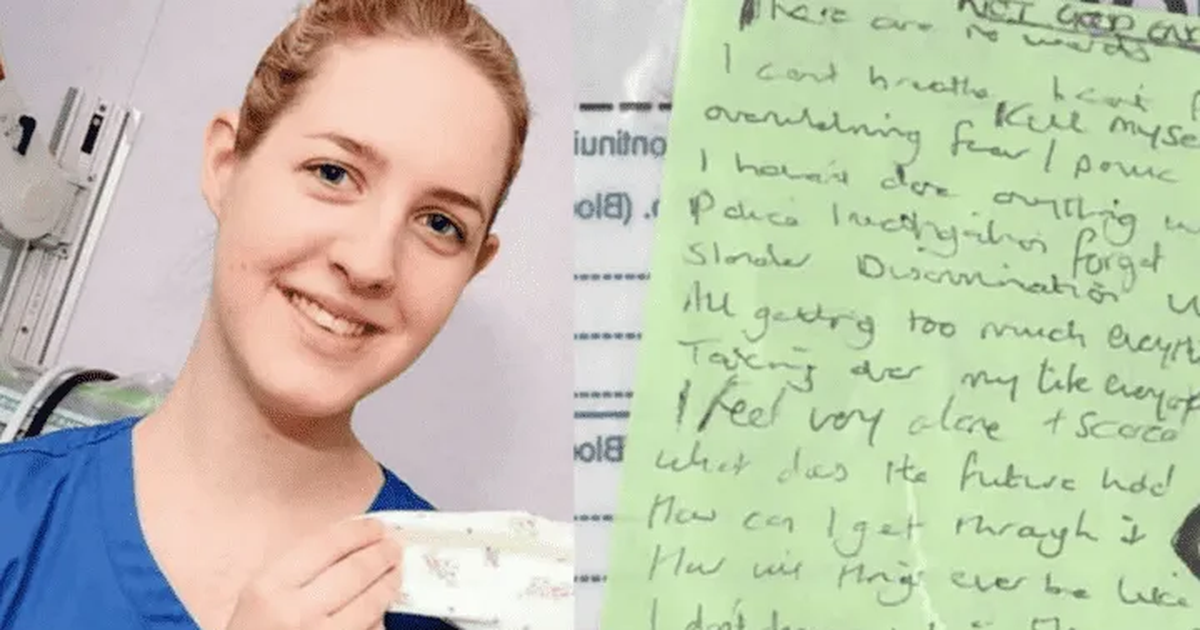 NOT GOOD
There are no words
I can't breathe I can't
Kill myse
overwhelming fear / panic
I haven't done anything
Police Investigation forget
Slander Discrimination
All getting too much everyth
Taking over my life every
I feel very alone + scared
What does the future hold
How can I get through it
How will things ever be like
I don't
ontinui
. (Bloo
Bloo